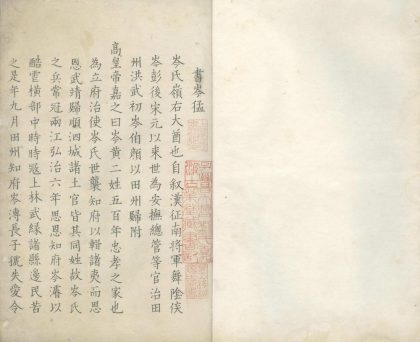 書岑猛
岑氏嶺右大酋也自叙漢征南將軍舞陰侯
岑彭後宋元以來世為安撫總管等官治田
州洪武初岑伯顏以田州歸附
高皇帝嘉之曰岑黃二姓五百年忠孝之家也
為立府治使岑氏世襲知府以輯諸夷而思
恩武靖歸順泗城諸土官皆其同姓故岑氏
之兵常冠兩江弘治六年思恩知府岑濬以
酷雲橫部中時時寇上林武緣諸縣邊民苦
之是年九月田州知府岑溥長子猇失愛令